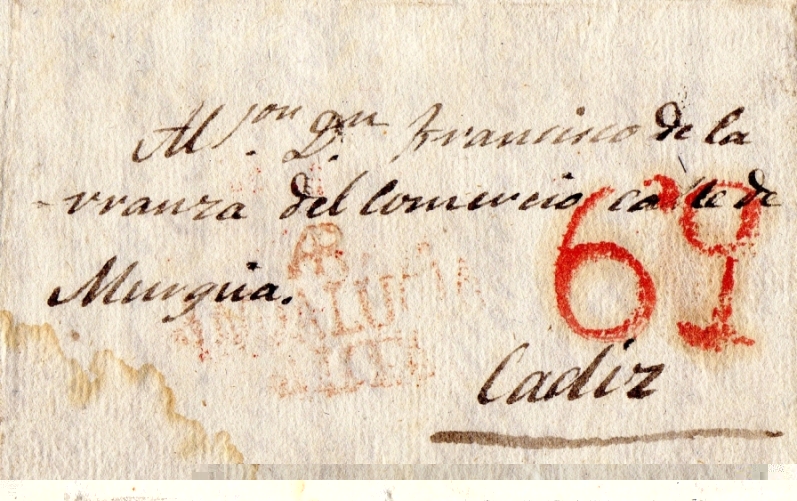 Al Sor. Dn. Francisco de la
-rranza del Comercio calle de
Murguia.
69
AB
ANDALUCIA
Cadiz